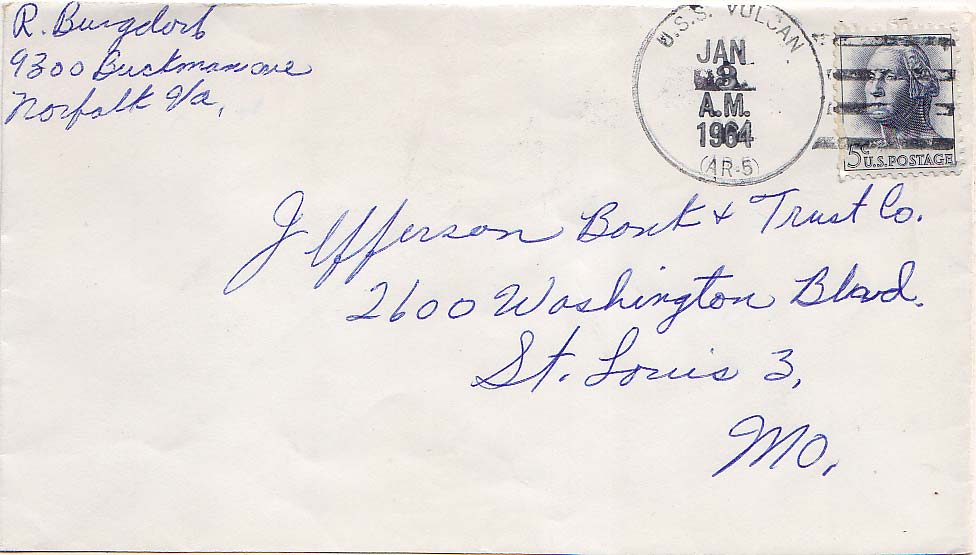 R. Burgdorf
9300 Buckman ave
Norfolk Va,
U.S.S. VULCAN
JAN
3
A.M.
1964
(AR-5)
5¢ U.S. POSTAGE
Jefferson Bank & Trust Co.
2600 Washington Blvd.
St. Louis 3,
Mo,